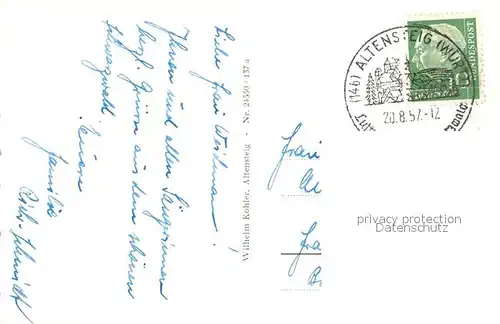 Liebe Frau Weidman!
Ihnen und allen Sängerinnen
herzl. Grüsse aus dem schönen
Schwarzwald.
Eure
Familie
Schmidt
Wilhelm Kohler, Altensteig - Nr. 24590 / 137 a
(14b) ALTENSTEIG (WÜR
20.8.57.-12
Luft
zwald
BUNDESPOST
10
Frau
Fra
B
privacy protection
Datenschutz